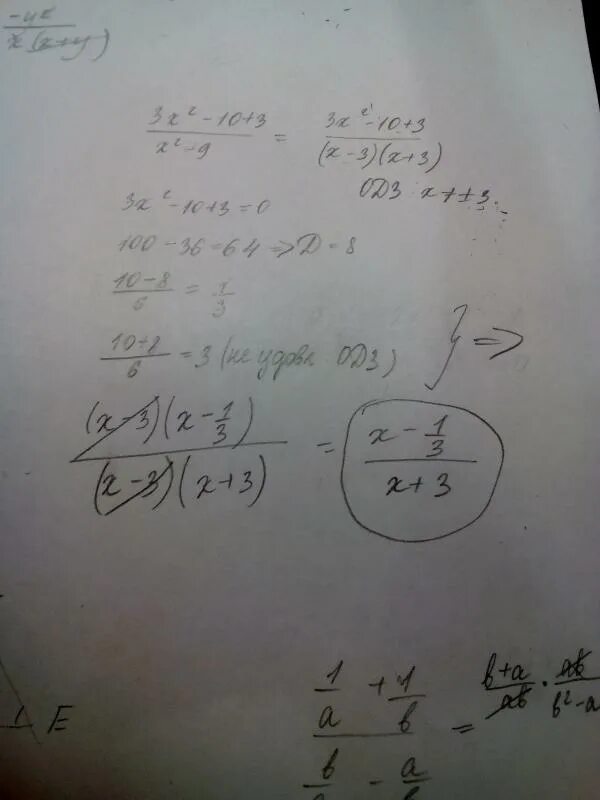 -y²/x(x+y)
3x² - 10+3/x² - 9 = 3x² - 10+3/(x-3)(x+3)
ОДЗ x ≠ ±3.
3x² - 10+3 = 0
100 - 36 = 64 => D = 8
10-8/6 = 1/3
10+8/6 = 3 (не удовл ОДЗ) } =>
(x-3)(x - 1/3)/(x-3)(x+3) = x - 1/3/x+3
1/a + 1/b = b+a/ab · ab/b²-a
1 E
b - a